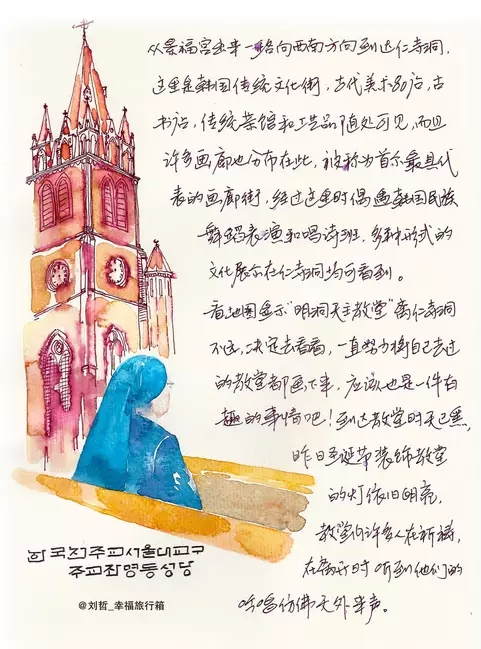 从景福宫出来一路向西南方向到达仁寺洞,
这里是韩国传统文化街,古代美术品店,古
书店,传统茶馆和工艺品随处可见,而且
许多画廊也分布在此,被称为首尔最具代
表的画廊街,经过这里时偶遇韩国民族
舞蹈表演和唱诗班,多种形式的
文化展示在仁寺洞均可看到。
看地图显示"明洞天主教堂"离仁寺洞
不远,决定去看看,一直努力将自己去过
的教堂都画下来,应该也是一件有
趣的事情吧!到达教堂时天已黑,
昨日圣诞节装饰教堂
的灯依旧明亮,
教堂内许多人在祈祷,
在离开时听到他们的
吟唱仿佛天外来声。
한국천주교서울대교구
주교좌명동성당
@刘哲_幸福旅行箱